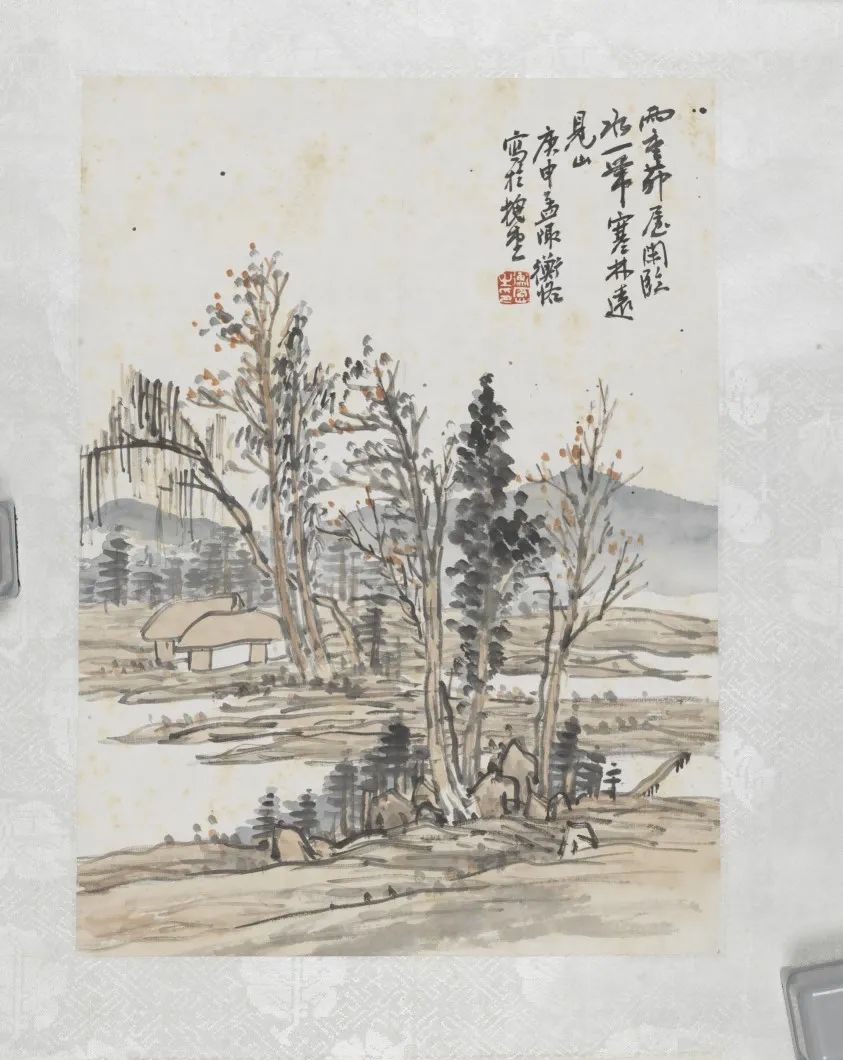 兩重茆屋閑臨
水一帶寒林遠
見山
庚申孟陬衡恪
寫於槐堂